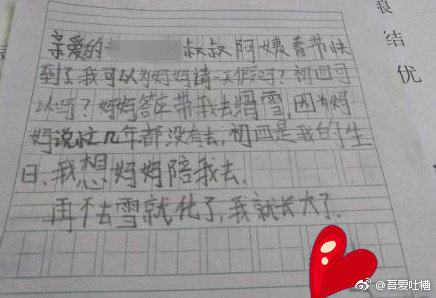 亲爱的 叔叔阿姨春节快
到了我可以为妈妈请一天假吗?初四可
以吗?妈妈答应带我去滑雪,因为妈
妈说忙几年都没有去,初四是我的生
日,我想妈妈陪我去.
再不去雪就化了,我就长大了.
结
优
@吾爱吐槽